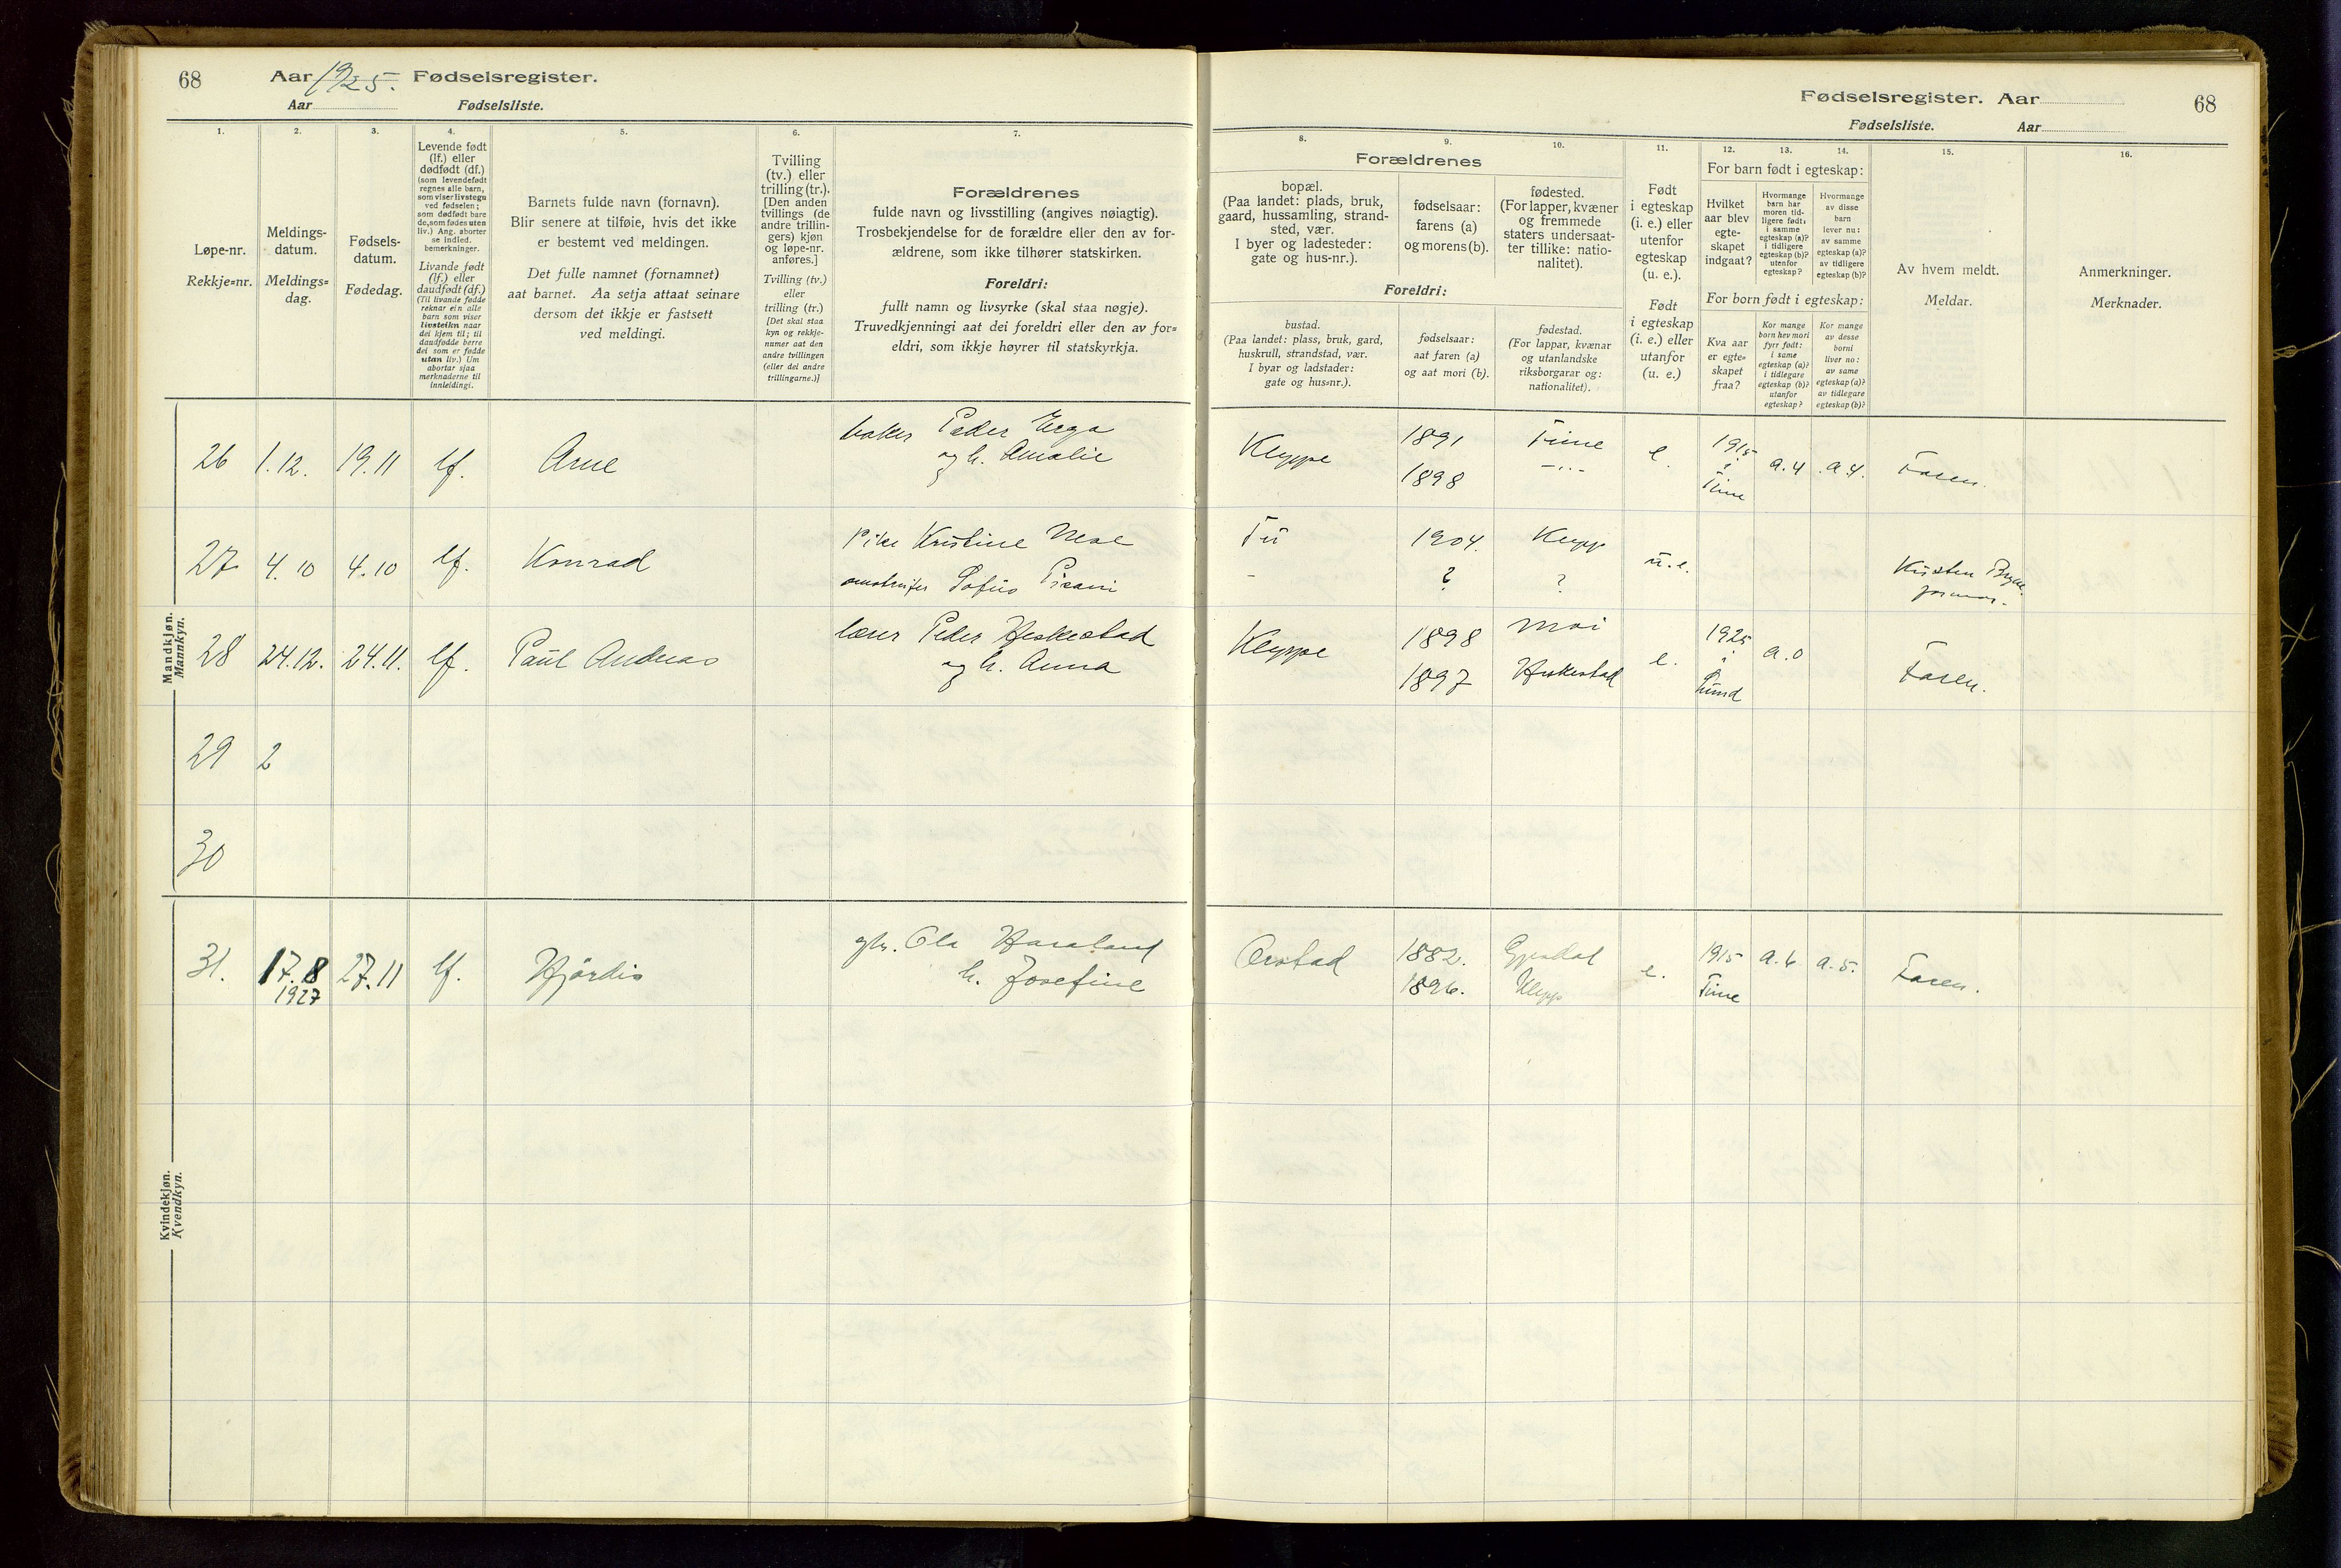 68 Aar 1925. Fødselsregister.
Aar Fødselsliste.
1.
Løpe-nr.
Rekkje=nr.
2.
Meldings-
datum.
Meldings=
dag.
3.
Fødsels-
datum.
Fødedag.
4.
Levende født
(lf.) eller
dødfødt (df.)
(som levendefødt
regnes alle barn,
som viser livstegn
ved fødselen;
som dødfødt bare
de, som fødes uten
liv.) Ang. aborter
se indled.
bemerkninger.
Livande født
(lf.) eller
daudfødt (df.)
(Til livande fødde
reknar ein alle
barn som viser
livsteikn naar
dei kjem til; til
daudfødde berre
dei som er fødde
utan liv.) Um
abortar sjaa
merknaderne til
innleidingi.
5.
Barnets fulde navn (fornavn).
Blir senere at tilføie, hvis det ikke
er bestemt ved meldingen.
Det fulle namnet (fornamnet)
aat barnet. Aa setja attaat seinare
dersom det ikkje er fastsett
ved meldingi.
6.
Tvilling
(tv.) eller
trilling (tr.).
[Den anden
tvillings (de
andre trillin-
gers) kjøn
og løpe-nr.
anføres.]
Tvilling (tv.)
eller
trilling (tr.)
[Det skal staa
kyn og rekkje-
numer aat den
andre tvillingen
(eller dei andre
trillingarne.)]
7.
Forældrenes
fulde navn og livsstilling (angives nøiagtig).
Trosbekjendelse for de forældre eller den av for-
ældrene, som ikke tilhører statskirken.
Foreldri:
fullt namn og livsyrke (skal staa nøgje).
Truvedkjenningi aat dei foreldri eller den av for=
eldri, som ikkje høyrer til statskyrkja.
Mandkjøn.
Mannkyn.
26 1.12. 19.11 lf. Arne baker Peder Erga
og h. Amalie
27 4.10 4.10 lf. Konrad Pike Kristine Nese
Sofus
28 24.12. 24.11. lf. Paul Andreas lærer Peder Heskestad
og h. Anna
29 2
30
Kvindekjøn.
Kvendkyn.
31. 17.8 27.11 lf. Hjördis gbr. Ola Haaland
1927 h. Josefine
Fødselsregister. Aar 68
Fødselsliste. Aar
8.
Forældrenes
bopæl.
(Paa landet: plads, bruk,
gaard, hussamling, strand-
sted, vær.
I byer og ladesteder:
gate og hus-nr.).
Foreldri:
bustad.
(Paa landet: plass, bruk, gard,
huskrull, strandstad, vær.
I byar og ladstader:
gate og hus=nr.).
9.
fødselsaar:
farens (a)
og morens (b).
fødselsaar:
aat faren (a)
og aat mori (b).
10.
fødested.
(For lapper, kvæner
og fremmede
staters undersaat-
ter tillike: natio-
nalitet).
fødestad.
(For lappar, kvænar
og utanlandske
riksborgarar og:
nationalitet).
11.
Født
i egteskap
(i. e.) eller
utenfor
egteskap
(u. e.).
Født
i egteskap
(i. e.) eller
utanfor
(u. e.)
12. 13. 14.
For barn født i egteskap:
Hvilket
aar blev
egte-
skapet
indgaat?
Hvormange
barn har
moren tid-
ligere født:
i samme
egteskap (a)?
i tidligere
egteskap (b)?
utenfor
egteskap?
Hvormange
av disse
barn
lever nu:
av samme
egteskap (a)?
av tidligere
egteskap (b)?
For born født i egteskap:
Kva aar
er egte=
skapet
fraa?
Kor mange
born hev mori
fyrr født:
i same
egteskap (a)?
i tidlegare
egteskap (b)?
utanfor
egteskap?
Kor mange
av desse
borni
liver no:
av same
egteskap (a)?
av tidlegare
egteskap (b)?
15.
Av hvem meldt.
Meldar.
16.
Anmerkninger.
Merknader.
Kleppe 1891 Time e. 1915 a.4 a.4. Faren.
1898 -"- i Time
Tu 1904. Klepp u.e. Kirsten Bryne
- ? ? jormor.
Kleppe 1898 Moi e. 1925 a.0 Faren.
1897 Heskestad i Lund
Orstad 1882. Gjesdal e. 1915 a.6 a.5. Faren.
1896. Klepp Time